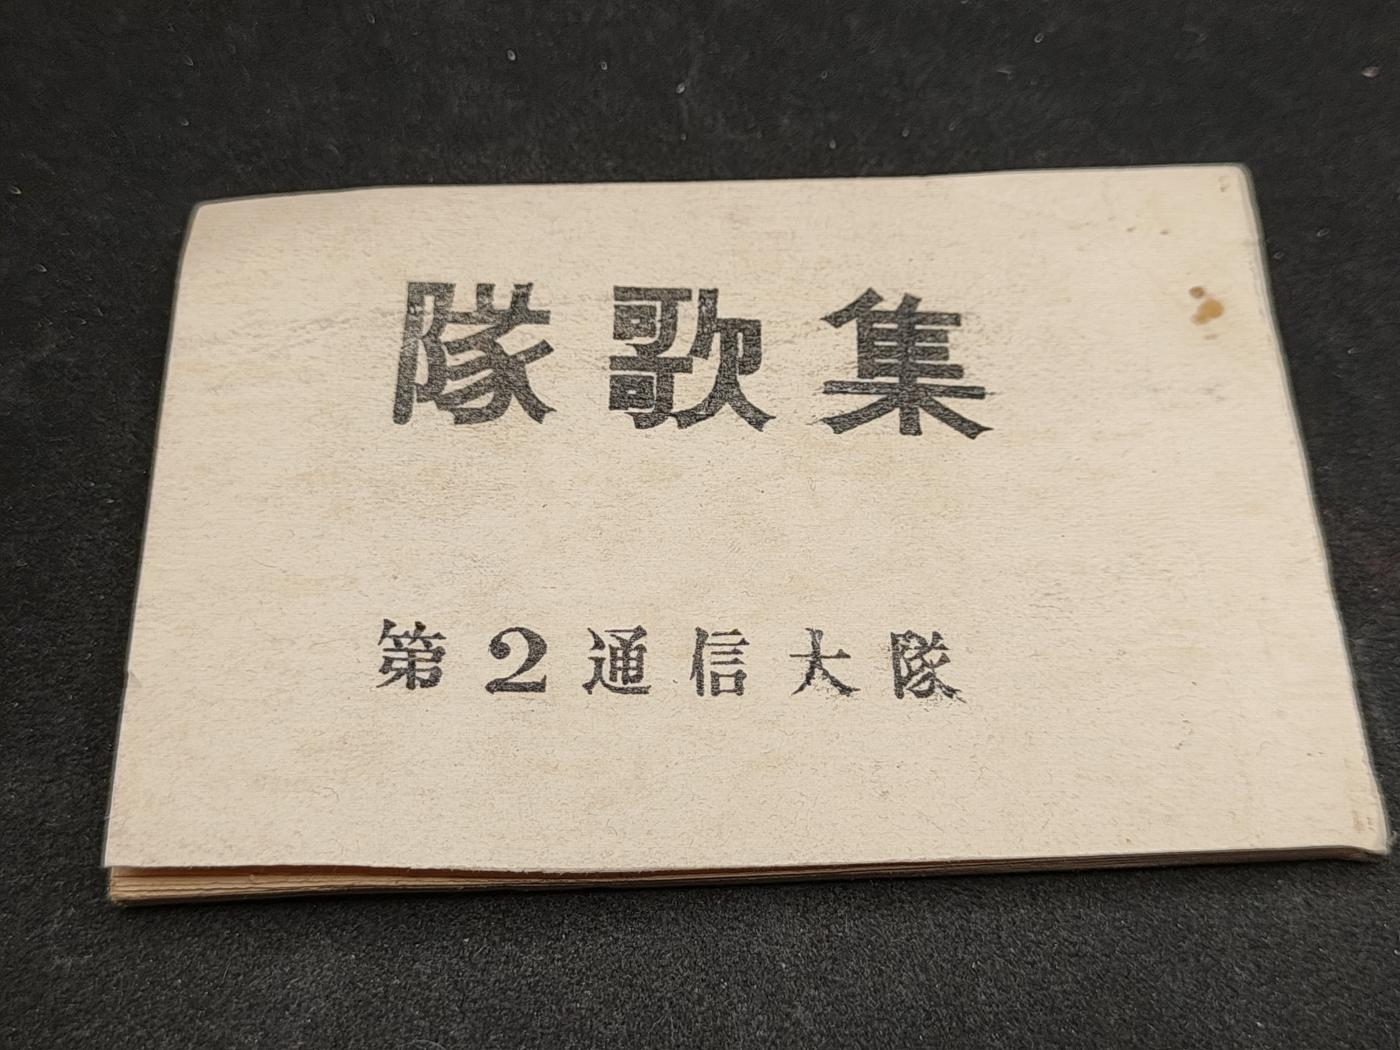 隊歌集
第2通信大隊